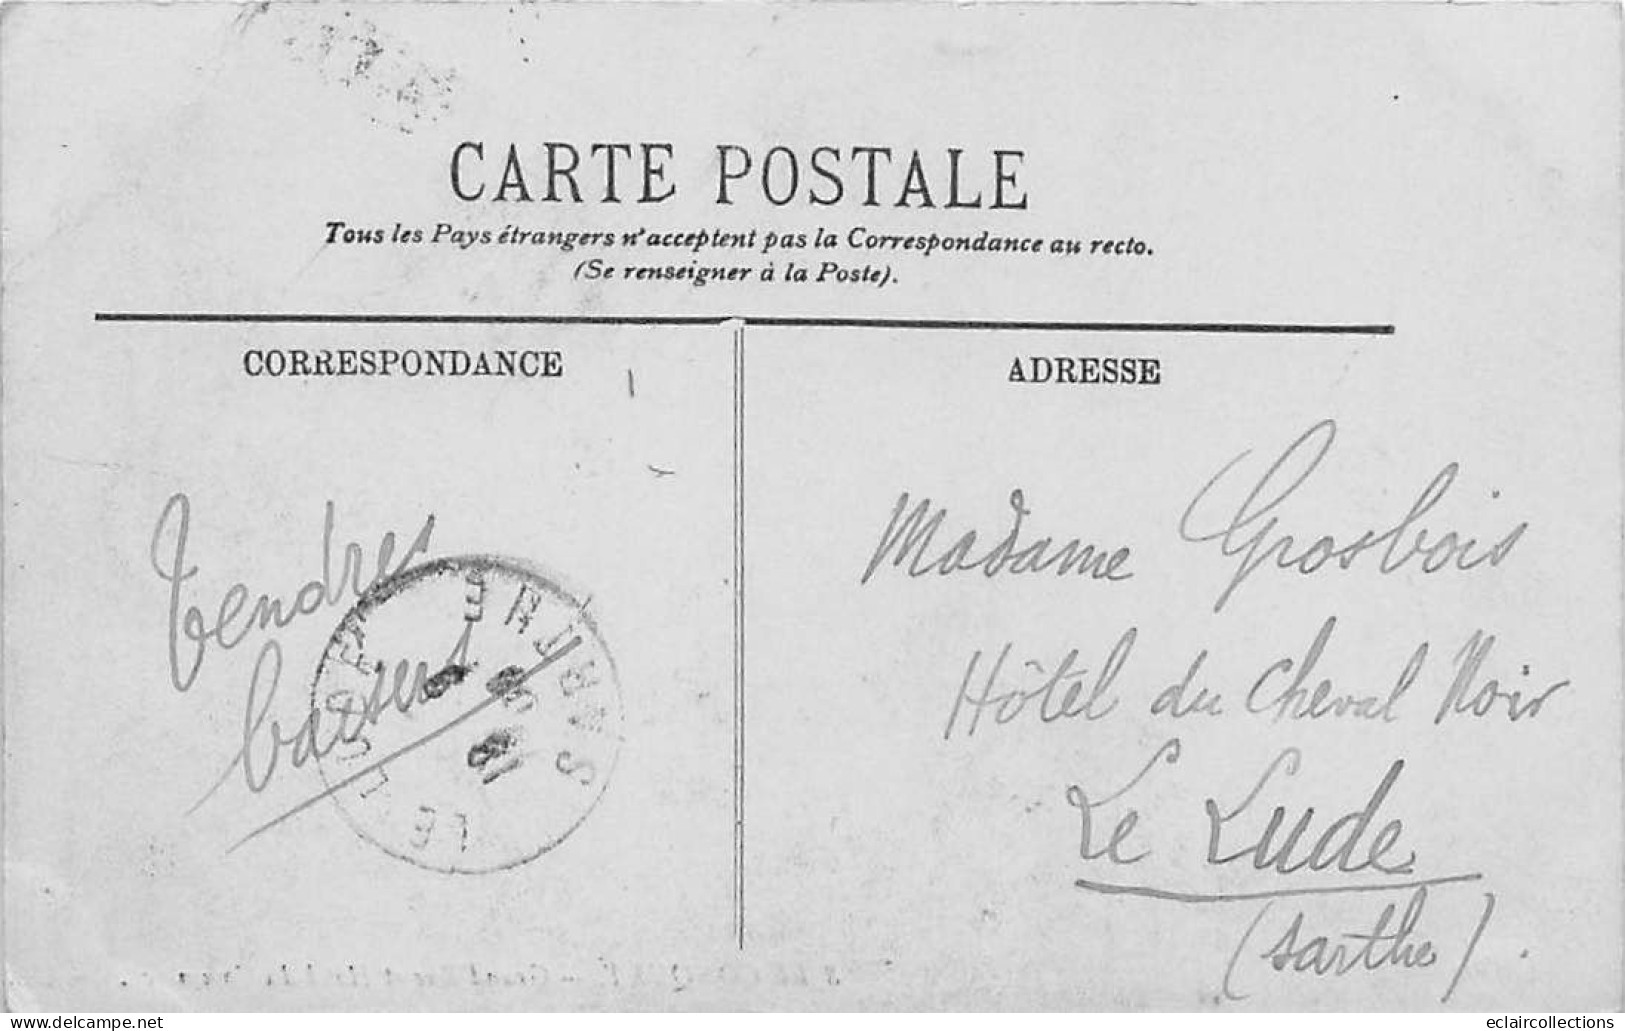 CARTE POSTALE
Tous les Pays étrangers n'acceptent pas la Correspondance au recto.
(Se renseigner à la Poste).
CORRESPONDANCE
ADRESSE
Tendres
baisers
Madame Grosbois
Hôtel du Cheval Noir
Le Lude
(Sarthe).
LE LUDE
SARTHE
delcampe.net
eclaircollections